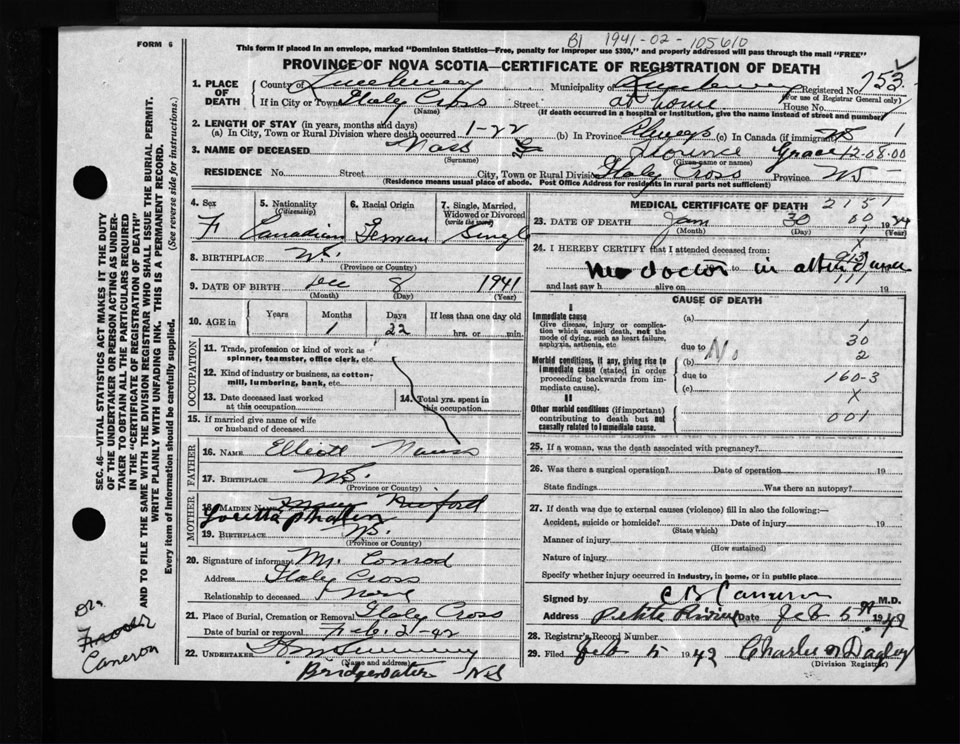 B1 1941-02-105610
FORM 6
This form if placed in an envelope, marked "Dominion Statistics—Free, penalty for improper use $300," and properly addressed will pass through the mail "FREE"
PROVINCE OF NOVA SCOTIA—CERTIFICATE OF REGISTRATION OF DEATH
1. PLACE OF DEATH
County of Lunenburg Municipality of Lunenburg Registered No. 753
(For use of Registrar General only)
If in City or Town Italy Cross Street at home House No.
(Name) (If death occurred in a hospital or institution, give the name instead of street and number)
2. LENGTH OF STAY (in years, months and days)
(a) In City, Town or Rural Division where death occurred 1-22 (b) In Province Always (c) In Canada (if immigrant) 1
3. NAME OF DECEASED Florence Grace 12-08-00
(Surname) (Given name or names)
RESIDENCE No. Street City, Town or Rural Division Italy Cross Province NS
(Residence means usual place of abode. Post Office Address for residents in rural parts not sufficient)
4. Sex F
5. Nationality (Citizenship) Canadian
6. Racial Origin German
7. Single, Married, Widowed or Divorced (write the word) Single
8. BIRTHPLACE NS.
(Province or Country)
9. DATE OF BIRTH Dec 8 1941
(Month) (Day) (Year)
10. AGE in Years Months Days If less than one day old
1 22 hrs. or min.
OCCUPATION
11. Trade, profession or kind of work as spinner, teamster, office clerk, etc.
12. Kind of industry or business, as cotton-mill, lumbering, bank, etc.
13. Date deceased last worked at this occupation
14. Total yrs. spent in this occupation
15. If married give name of wife or husband of deceased
FATHER
16. NAME Elliott
17. BIRTHPLACE NS
(Province or Country)
MOTHER
18. MAIDEN NAME
Loretta
19. BIRTHPLACE NS.
(Province or Country)
20. Signature of informant M. Conrad
Address Italy Cross
Relationship to deceased
21. Place of Burial, Cremation or Removal Italy Cross
Date of burial or removal Feb. 2-42
22. UNDERTAKER
(Name and address)
Bridgewater NS
MEDICAL CERTIFICATE OF DEATH 2151
23. DATE OF DEATH Jan 30 19
(Month) (Day) (Year)
24. I HEREBY CERTIFY that I attended deceased from:
No doctor to in attendance
and last saw h alive on 19
CAUSE OF DEATH
I
Immediate cause
Give disease, injury or complication which caused death, not the mode of dying, such as heart failure, asphyxia, asthenia, etc
(a) 1
due to No 30
Morbid conditions, if any, giving rise to immediate cause (stated in order proceeding backwards from immediate cause).
(b) 2
due to 160-3
(c) X
II
Other morbid conditions (if important) contributing to death but not causally related to immediate cause.
001
25. If a woman, was the death associated with pregnancy?
26. Was there a surgical operation? Date of operation 19
State findings Was there an autopsy?
27. If death was due to external causes (violence) fill in also the following:—
Accident, suicide or homicide? Date of injury 19
(State which)
Manner of injury
(How sustained)
Nature of injury
Specify whether injury occurred in industry, in home, or in public place
Signed by C B Cameron M.D.
Address Petite Riviere Date Feb 5th 1942
28. Registrar's Record Number
29. Filed Feb 5 1942 Charles Dagley
(Division Registrar)
SEC. 46—VITAL STATISTICS ACT MAKES IT THE DUTY
OF THE UNDERTAKER OR PERSON ACTING AS UNDER-
TAKER TO OBTAIN ALL THE PARTICULARS REQUIRED
IN THE "CERTIFICATE OF REGISTRATION OF DEATH"
AND TO FILE THE SAME WITH THE DIVISION REGISTRAR WHO SHALL ISSUE THE BURIAL PERMIT.
WRITE PLAINLY WITH UNFADING INK. THIS IS A PERMANENT RECORD.
Every item of information should be carefully supplied. (See reverse side for instructions.)
Dr.
Cameron